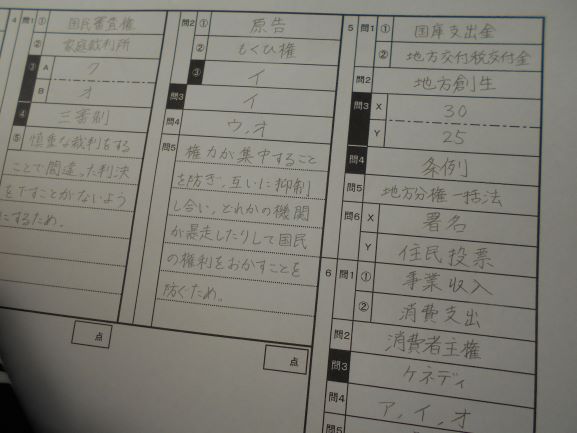 4 問1 ① 国民審査権
② 家庭裁判所
③ A ク
B オ
④ 三審制
⑤ 慎重な裁判をする
ことで間違った判決
を下すことがないよう
にするため。
点
問2 ① 原告
② もくひ権
③ イ
問3 イ
問4 ウ,オ
問5 権力が集中すること
を防ぎ,互いに抑制
し合い,どれかの機関
が暴走したりして国民
の権利をおかすことを
防ぐため。
点
5 問1 ① 国庫支出金
② 地方交付税交付金
問2 地方創生
問3 X 30
Y 25
問4 条例
問5 地方分権一括法
問6 X 署名
Y 住民投票
6 問1 ① 事業収入
② 消費支出
問2 消費者主権
問3 ケネディ
問4 ア,イ,オ
問5